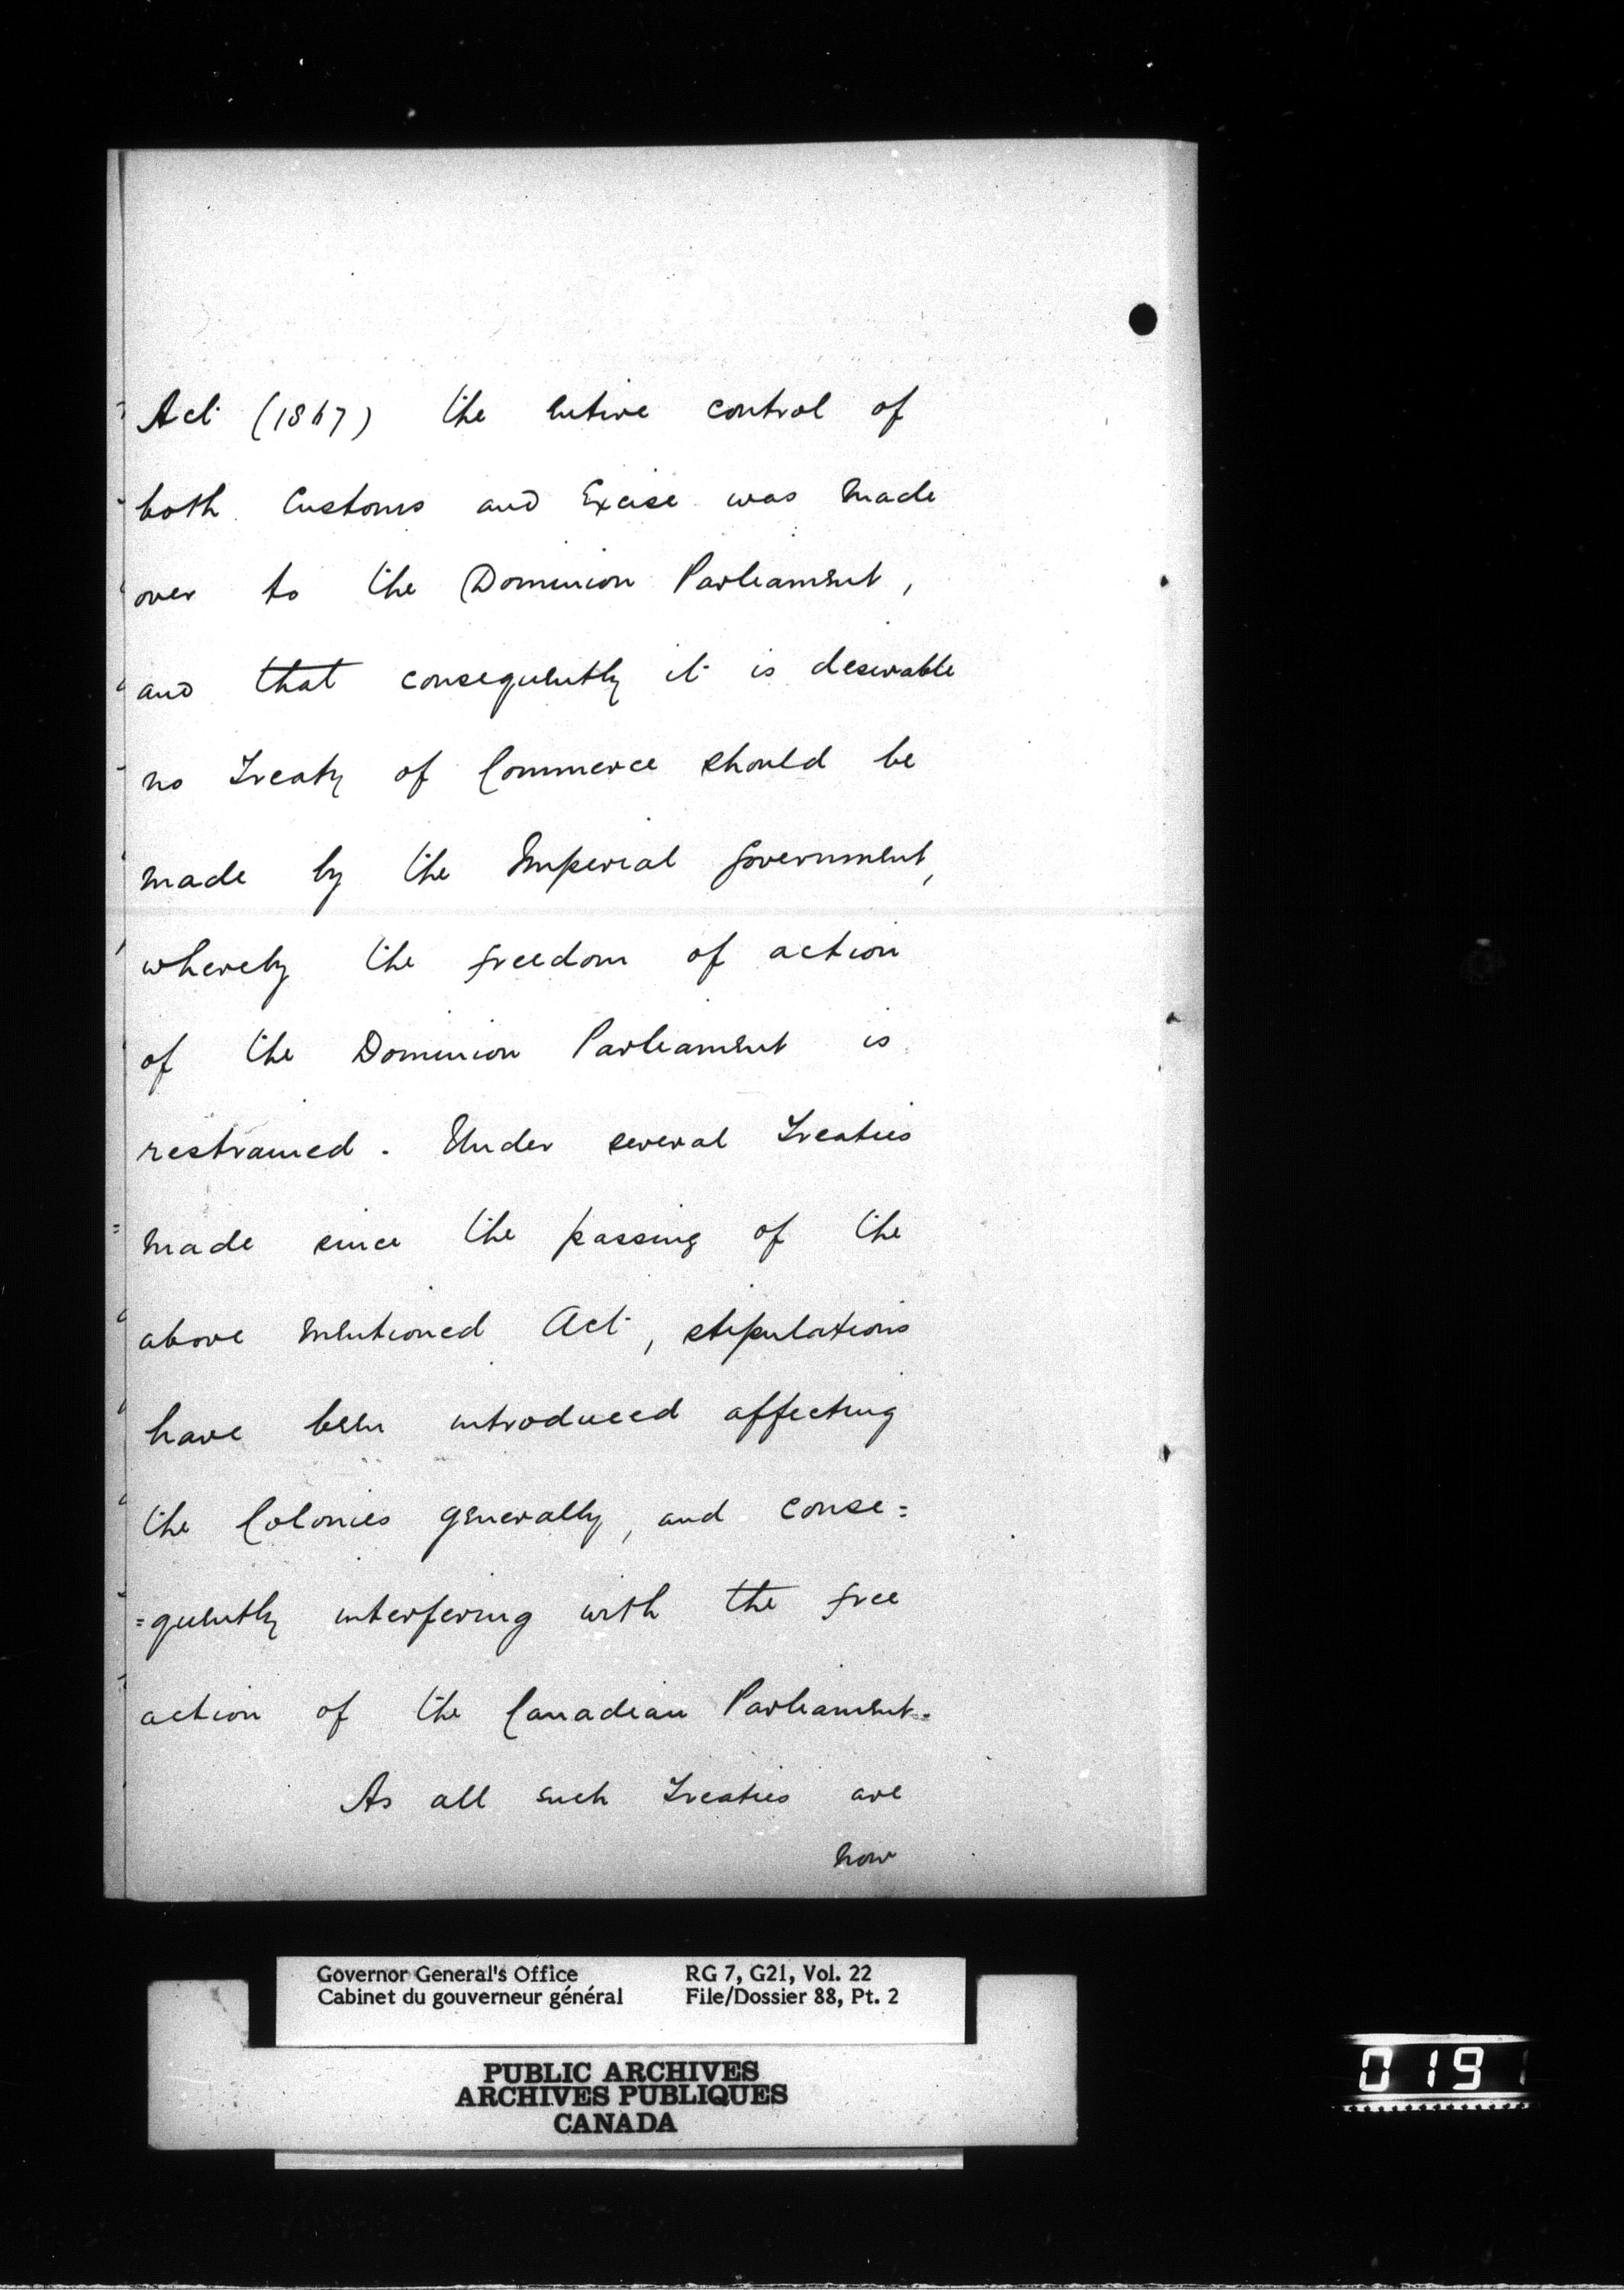 Act (1867) the entire control of
both Customs and Excise was made
over to the Dominion Parliament,
and that consequently it is desirable
no Treaty of Commerce should be
made by the Imperial Government,
whereby the freedom of action
of the Dominion Parliament is
restrained. Under several Treaties
made since the passing of the
above mentioned Act, stipulations
have been introduced affecting
the Colonies generally, and conse=
=quently interfering with the free
action of the Canadian Parliament.
As all such Treaties are
now
Governor General's Office RG 7, G21, Vol. 22
Cabinet du gouverneur général File/Dossier 88, Pt. 2
PUBLIC ARCHIVES
ARCHIVES PUBLIQUES
CANADA
019